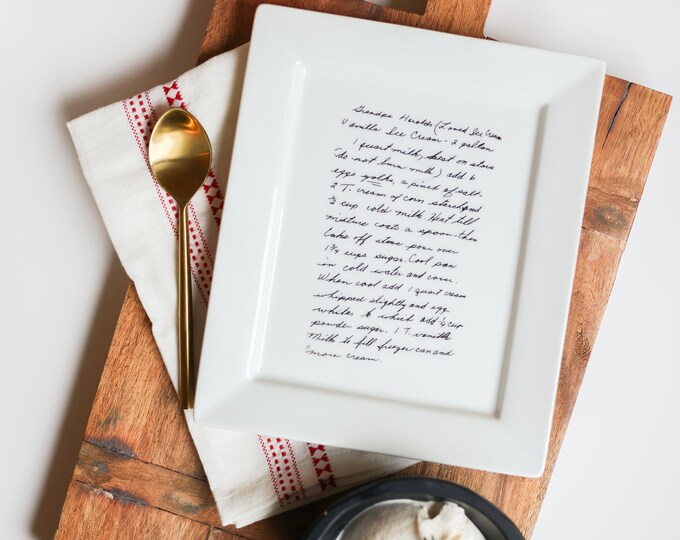 Grandpa Harolds (Loved Ice Cream
Vanilla Ice Cream - 2 gallon
1 quart milk, heat on stove
(do not burn milk) add 6
egg yolks, a pinch of salt.
2 T. cream of corn starch and
cup cold milk. Heat till
mixture coats a spoon - then
take off stove pour over
1¾ cups sugar. Cool pan
in cold water and cover.
When cool add 1 quart cream
whipped slightly and egg
whites to which add ¼ cup
powder sugar, 1 T. vanilla
Milk to fill freezer can and
more cream.